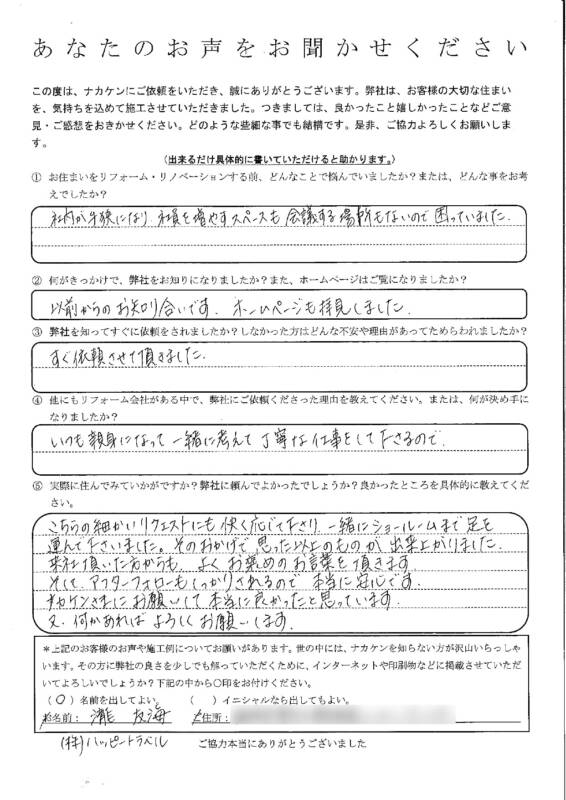 あなたのお声をお聞かせください
この度は、ナカケンにご依頼をいただき、誠にありがとうございます。弊社は、お客様の大切な住まい
を、気持ちを込めて施工させていただきました。つきましては、良かったこと嬉しかったことなどご意
見・ご感想をおきかせください。どのような些細な事でも結構です。是非、ご協力よろしくお願いしま
す。
(出来るだけ具体的に書いていただけると助かります。)
① お住まいをリフォーム・リノベーションする前、どんなことで悩んでいましたか?または、どんな事をお考
えでしたか?
社内が手狭になり、社員を増やすスペースも会議する場所もないので困っていました。
② 何がきっかけで、弊社をお知りになりましたか?また、ホームページはご覧になりましたか?
以前からのお知り合いです。ホームページも拝見しました。
③ 弊社を知ってすぐに依頼をされましたか?しなかった方はどんな不安や理由があってためらわれましたか?
すぐ依頼させて頂きました。
④ 他にもリフォーム会社がある中で、弊社にご依頼くださった理由を教えてください。または、何が決め手に
なりましたか?
いつも親身になって一緒に考えて丁寧な仕事をして下さるので。
⑤ 実際に住んでみていかがですか?弊社に頼んでよかったでしょうか?良かったところを具体的に教えてくだ
さい。
こちらの細かいリクエストにも快く応じて下さり、一緒にショールームまで足を
運んで下さいました。そのおかげで思った以上のものが出来上がりました。
来社頂いた方からも、よくお褒めのお言葉を頂きます。
そして、アフターフォローもしっかりされるので本当に安心です。
ナカケンさまにお願いして本当に良かったと思っています。
又、何かあればよろしくお願いします。
*上記のお客様のお声や施工例についてお願いがあります。世の中には、ナカケンを知らない方が沢山いらっしゃ
います。その方に弊社の良さを少しでも解っていただくために、インターネットや印刷物などに掲載させていただ
いてよろしいでしょうか?下記の中から○印をお付けください。
(○)名前を出してよい ( )イニシャルなら出してもよい。
お名前: 瀧 友海 ご住所:
(株)ハッピートラベル ご協力本当にありがとうございました